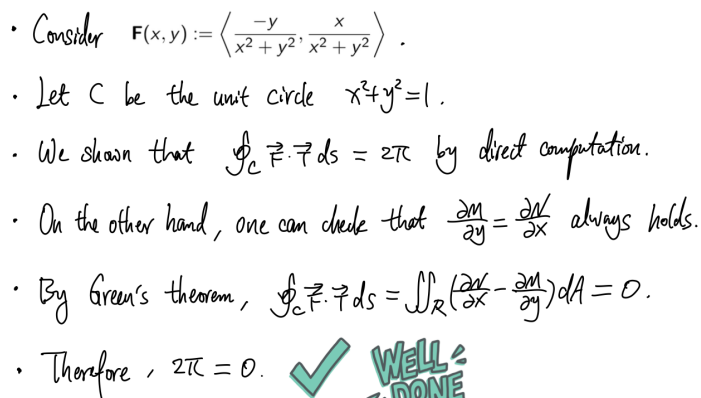 • Consider F(x, y) := ⟨ −y / (x² + y²), x / (x² + y²) ⟩ .
• Let C be the unit circle x²+y²=1.
• We shown that ∮_C F⃗·T⃗ ds = 2π by direct computation.
• On the other hand, one can check that ∂M/∂y = ∂N/∂x always holds.
• By Green's theorem, ∮_C F⃗·T⃗ ds = ∬_R (∂N/∂x − ∂M/∂y) dA = 0.
• Therefore, 2π = 0. ✓ WELL
DONE